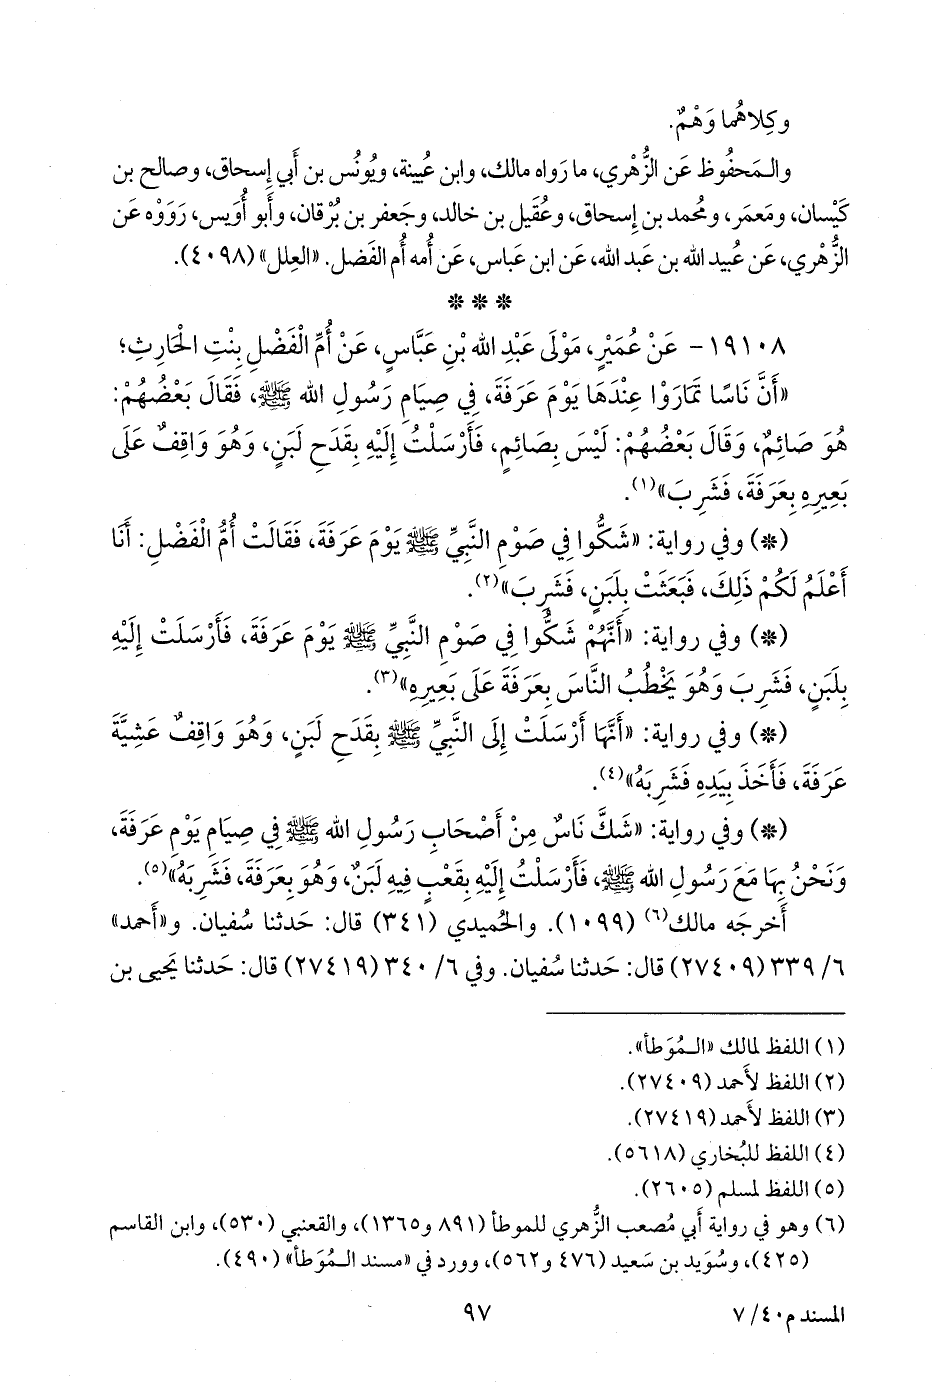 وكِلاهُما وَهْمٌ.
والـمَحفُوظ عَن الزُّهْري، ما رَواه مالك، وابن عُيينة، ويُونُس بن أَبي إِسحاق، وصالح بن
كَيْسان، ومَعمَر، ومُحمد بن إِسحاق، وعُقَيل بن خالد، وجَعفر بن بُرْقان، وأَبو أُوَيس، رَوَوْه عَن
الزُّهْري، عَن عُبيد الله بن عَبد الله، عَن ابن عَباس، عَن أُمه أُم الفَضل. «العِلل» (٤٠٩٨).
* * *
١٩١٠٨- عَنْ عُمَيْرٍ، مَوْلَى عَبْدِ الله بْنِ عَبَّاسٍ، عَنْ أُمِّ الْفَضْلِ بِنْتِ الْحَارِثِ؛
«أَنَّ نَاسًا تَمَارَوْا عِنْدَهَا يَوْمَ عَرَفَةَ، فِي صِيَامِ رَسُولِ الله ﷺ، فَقَالَ بَعْضُهُمْ:
هُوَ صَائِمٌ، وَقَالَ بَعْضُهُمْ: لَيْسَ بِصَائِمٍ، فَأَرْسَلْتُ إِلَيْهِ بِقَدَحِ لَبَنٍ، وَهُوَ وَاقِفٌ عَلَى
بَعِيرِهِ بِعَرَفَةَ، فَشَرِبَ»(١).
(*) وفي رواية: «شَكُّوا فِي صَوْمِ النَّبِيِّ ﷺ يَوْمَ عَرَفَةَ، فَقَالَتْ أُمُّ الْفَضْلِ: أَنَا
أَعْلَمُ لَكُمْ ذَلِكَ، فَبَعَثَتْ بِلَبَنٍ، فَشَرِبَ»(٢).
(*) وفي رواية: «أَنَّهُمْ شَكُّوا فِي صَوْمِ النَّبِيِّ ﷺ يَوْمَ عَرَفَةَ، فَأَرْسَلَتْ إِلَيْهِ
بِلَبَنٍ، فَشَرِبَ وَهُوَ يَخْطُبُ النَّاسَ بِعَرَفَةَ عَلَى بَعِيرِهِ»(٣).
(*) وفي رواية: «أَنَّهَا أَرْسَلَتْ إِلَى النَّبِيِّ ﷺ بِقَدَحِ لَبَنٍ، وَهُوَ وَاقِفٌ عَشِيَّةَ
عَرَفَةَ، فَأَخَذَ بِيَدِهِ فَشَرِبَهُ»(٤).
(*) وفي رواية: «شَكَّ نَاسٌ مِنْ أَصْحَابِ رَسُولِ الله ﷺ فِي صِيَامِ يَوْمِ عَرَفَةَ،
وَنَحْنُ بِهَا مَعَ رَسُولِ الله ﷺ، فَأَرْسَلْتُ إِلَيْهِ بِقَعْبٍ فِيهِ لَبَنٌ، وَهُوَ بِعَرَفَةَ، فَشَرِبَهُ»(٥).
أَخرجَه مالك(٦) (١٠٩٩). والحُميدي (٣٤١) قال: حَدثنا سُفيان. و«أَحمد»
٦/ ٣٣٩ (٢٧٤٠٩) قال: حَدثنا سُفيان. وفي ٦/ ٣٤٠ (٢٧٤١٩) قال: حَدثنا يَحيى بن
(١) اللفظ لمالك «الـمُوَطأ».
(٢) اللفظ لأَحمد (٢٧٤٠٩).
(٣) اللفظ لأَحمد (٢٧٤١٩).
(٤) اللفظ للبُخاري (٥٦١٨).
(٥) اللفظ لمسلم (٢٦٠٥).
(٦) وهو في رواية أَبي مُصعب الزُّهري للموطأ (٨٩١ و١٣٦٥)، والقعنبي (٥٣٠)، وابن القاسم
(٤٢٥)، وسُوَيد بن سَعيد (٤٧٦ و٥٦٢)، وورد في «مسند الـمُوَطأ» (٤٩٠).
المسند م٤٠/ ٧
٩٧